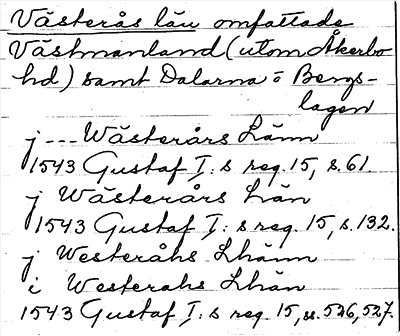 Västerås län omfattade
Västmanland (utom Åkerbo
hd) samt Dalarna o Bergs-
lagen
j --- Wästerårs Länn
1543 Gustaf I:s reg. 15, s. 61.
j Wästerårs Län
1543 Gustaf I:s reg. 15, s. 132.
j Westeråhs Lhänn
i Westerahs Lhän
1543 Gustaf I:s reg. 15, ss. 526, 527.